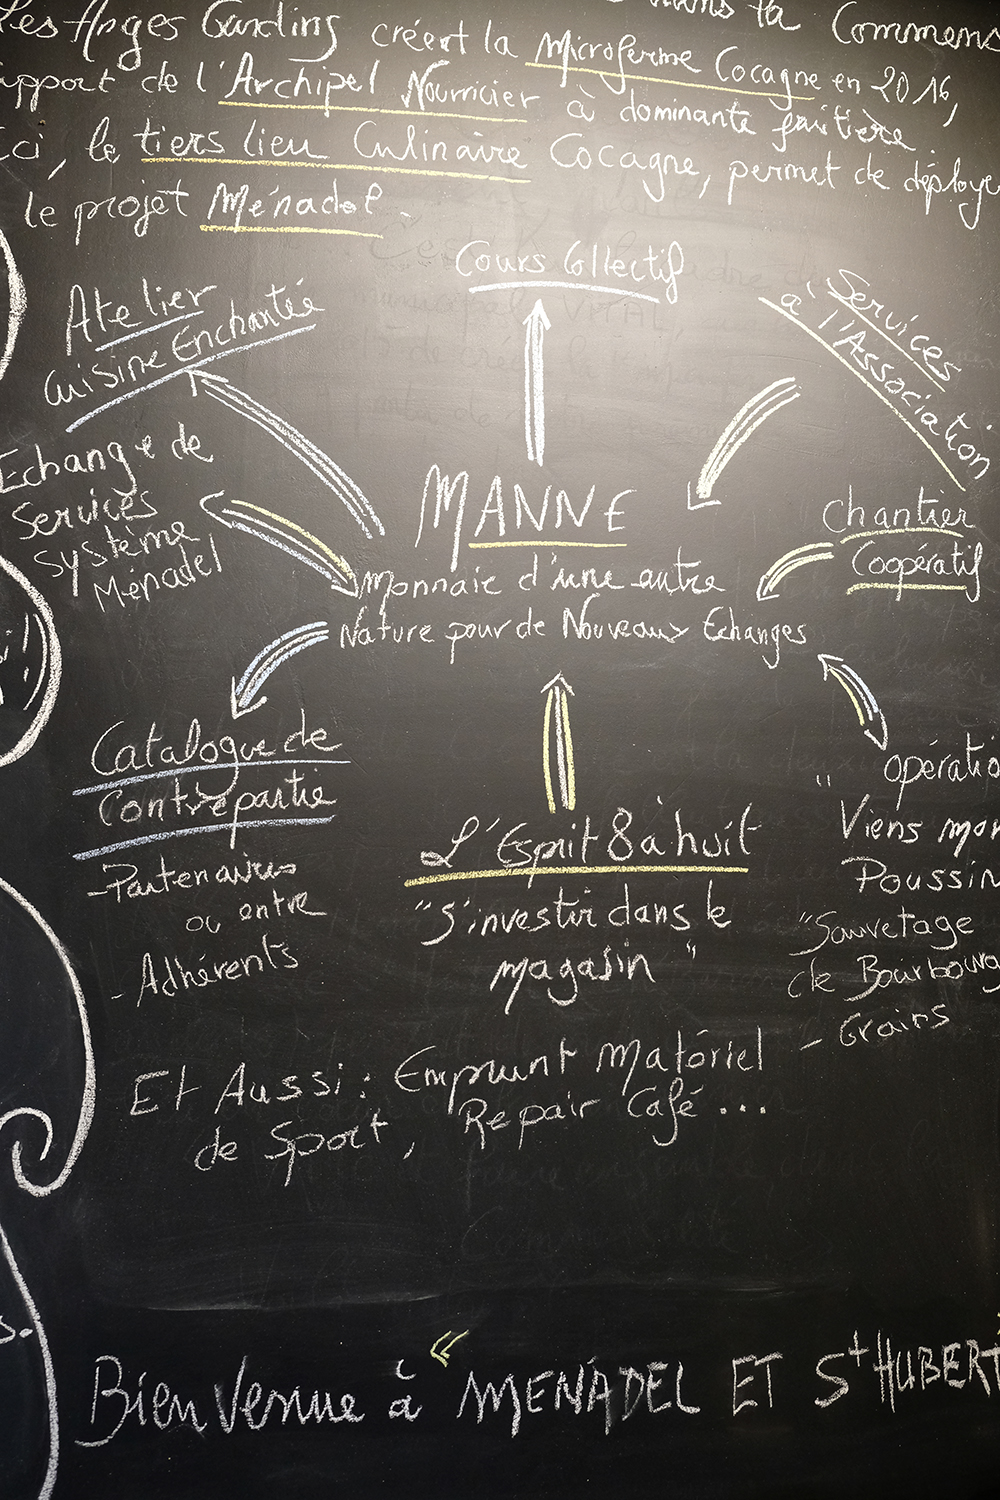 dans la Commens
Les Anges Gardins créent la Microferme Cocagne en 2016,
upport de l'Archipel Nourricier à dominante fruitière.
ci, le tiers lieu Culinaire Cocagne, permet de déploye
le projet Ménadel.
Cours Collectif
Atelier
Cuisine Enchantée
Services
à l'Association
Echange de
Services
système
Ménadel
MANNE
Monnaie d'une autre
Nature pour de Nouveaux Echanges
Chantier
Coopératif
Catalogue de
Contrepartie
- Partenaires
ou entre
- Adhérents
L'Esprit 8 à huit
"S'investir dans le
magasin"
" opératio
Viens mon
Poussin
"Sauvetage
de Bourbourg
- Grains
Et Aussi : Emprunt Matériel
de Sport, Repair Café ...
s.
Bienvenue à "MENADEL ET St HUBERT